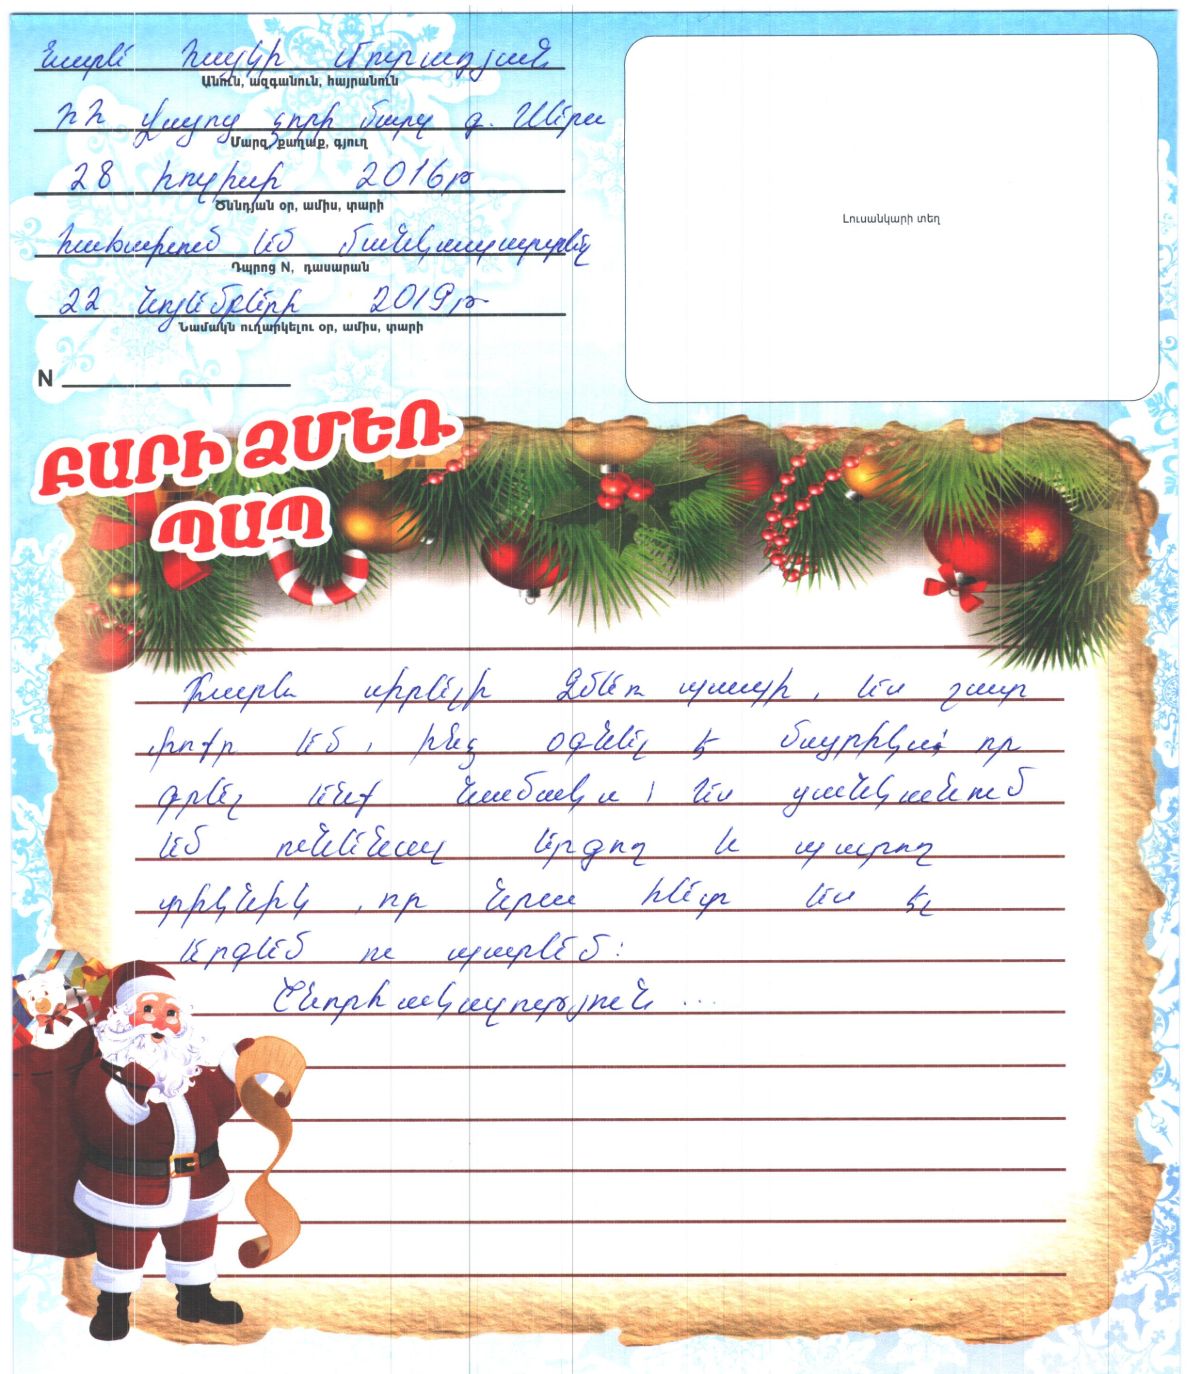 Նարե Հայկի Մուրադյան
Անուն, ազգանուն, հայրանուն
ՀՀ Վայոց ձորի մարզ գ.
Մարզ, քաղաք, գյուղ
28 հուլիսի 2016թ
Ծննդյան օր, ամիս, տարի
հաճախում եմ մանկապարտեզ
Դպրոց N, դասարան
22 նոյեմբերի 2019թ
Նամակն ուղարկելու օր, ամիս, տարի
N
Լուսանկարի տեղ
ԲԱՐԻ ՁՄԵՌ
ՊԱՊ
Բարև սիրելի Ձմեռ պապի, ես շատ
փոքր եմ, ինձ օգնել է մայրիկս, որ
գրել ենք նամակս։ Ես ցանկանում
եմ ունենալ երգող և պարող
տիկնիկ, որ նրա հետ ես էլ
երգեմ ու պարեմ։
Շնորհակալություն ...